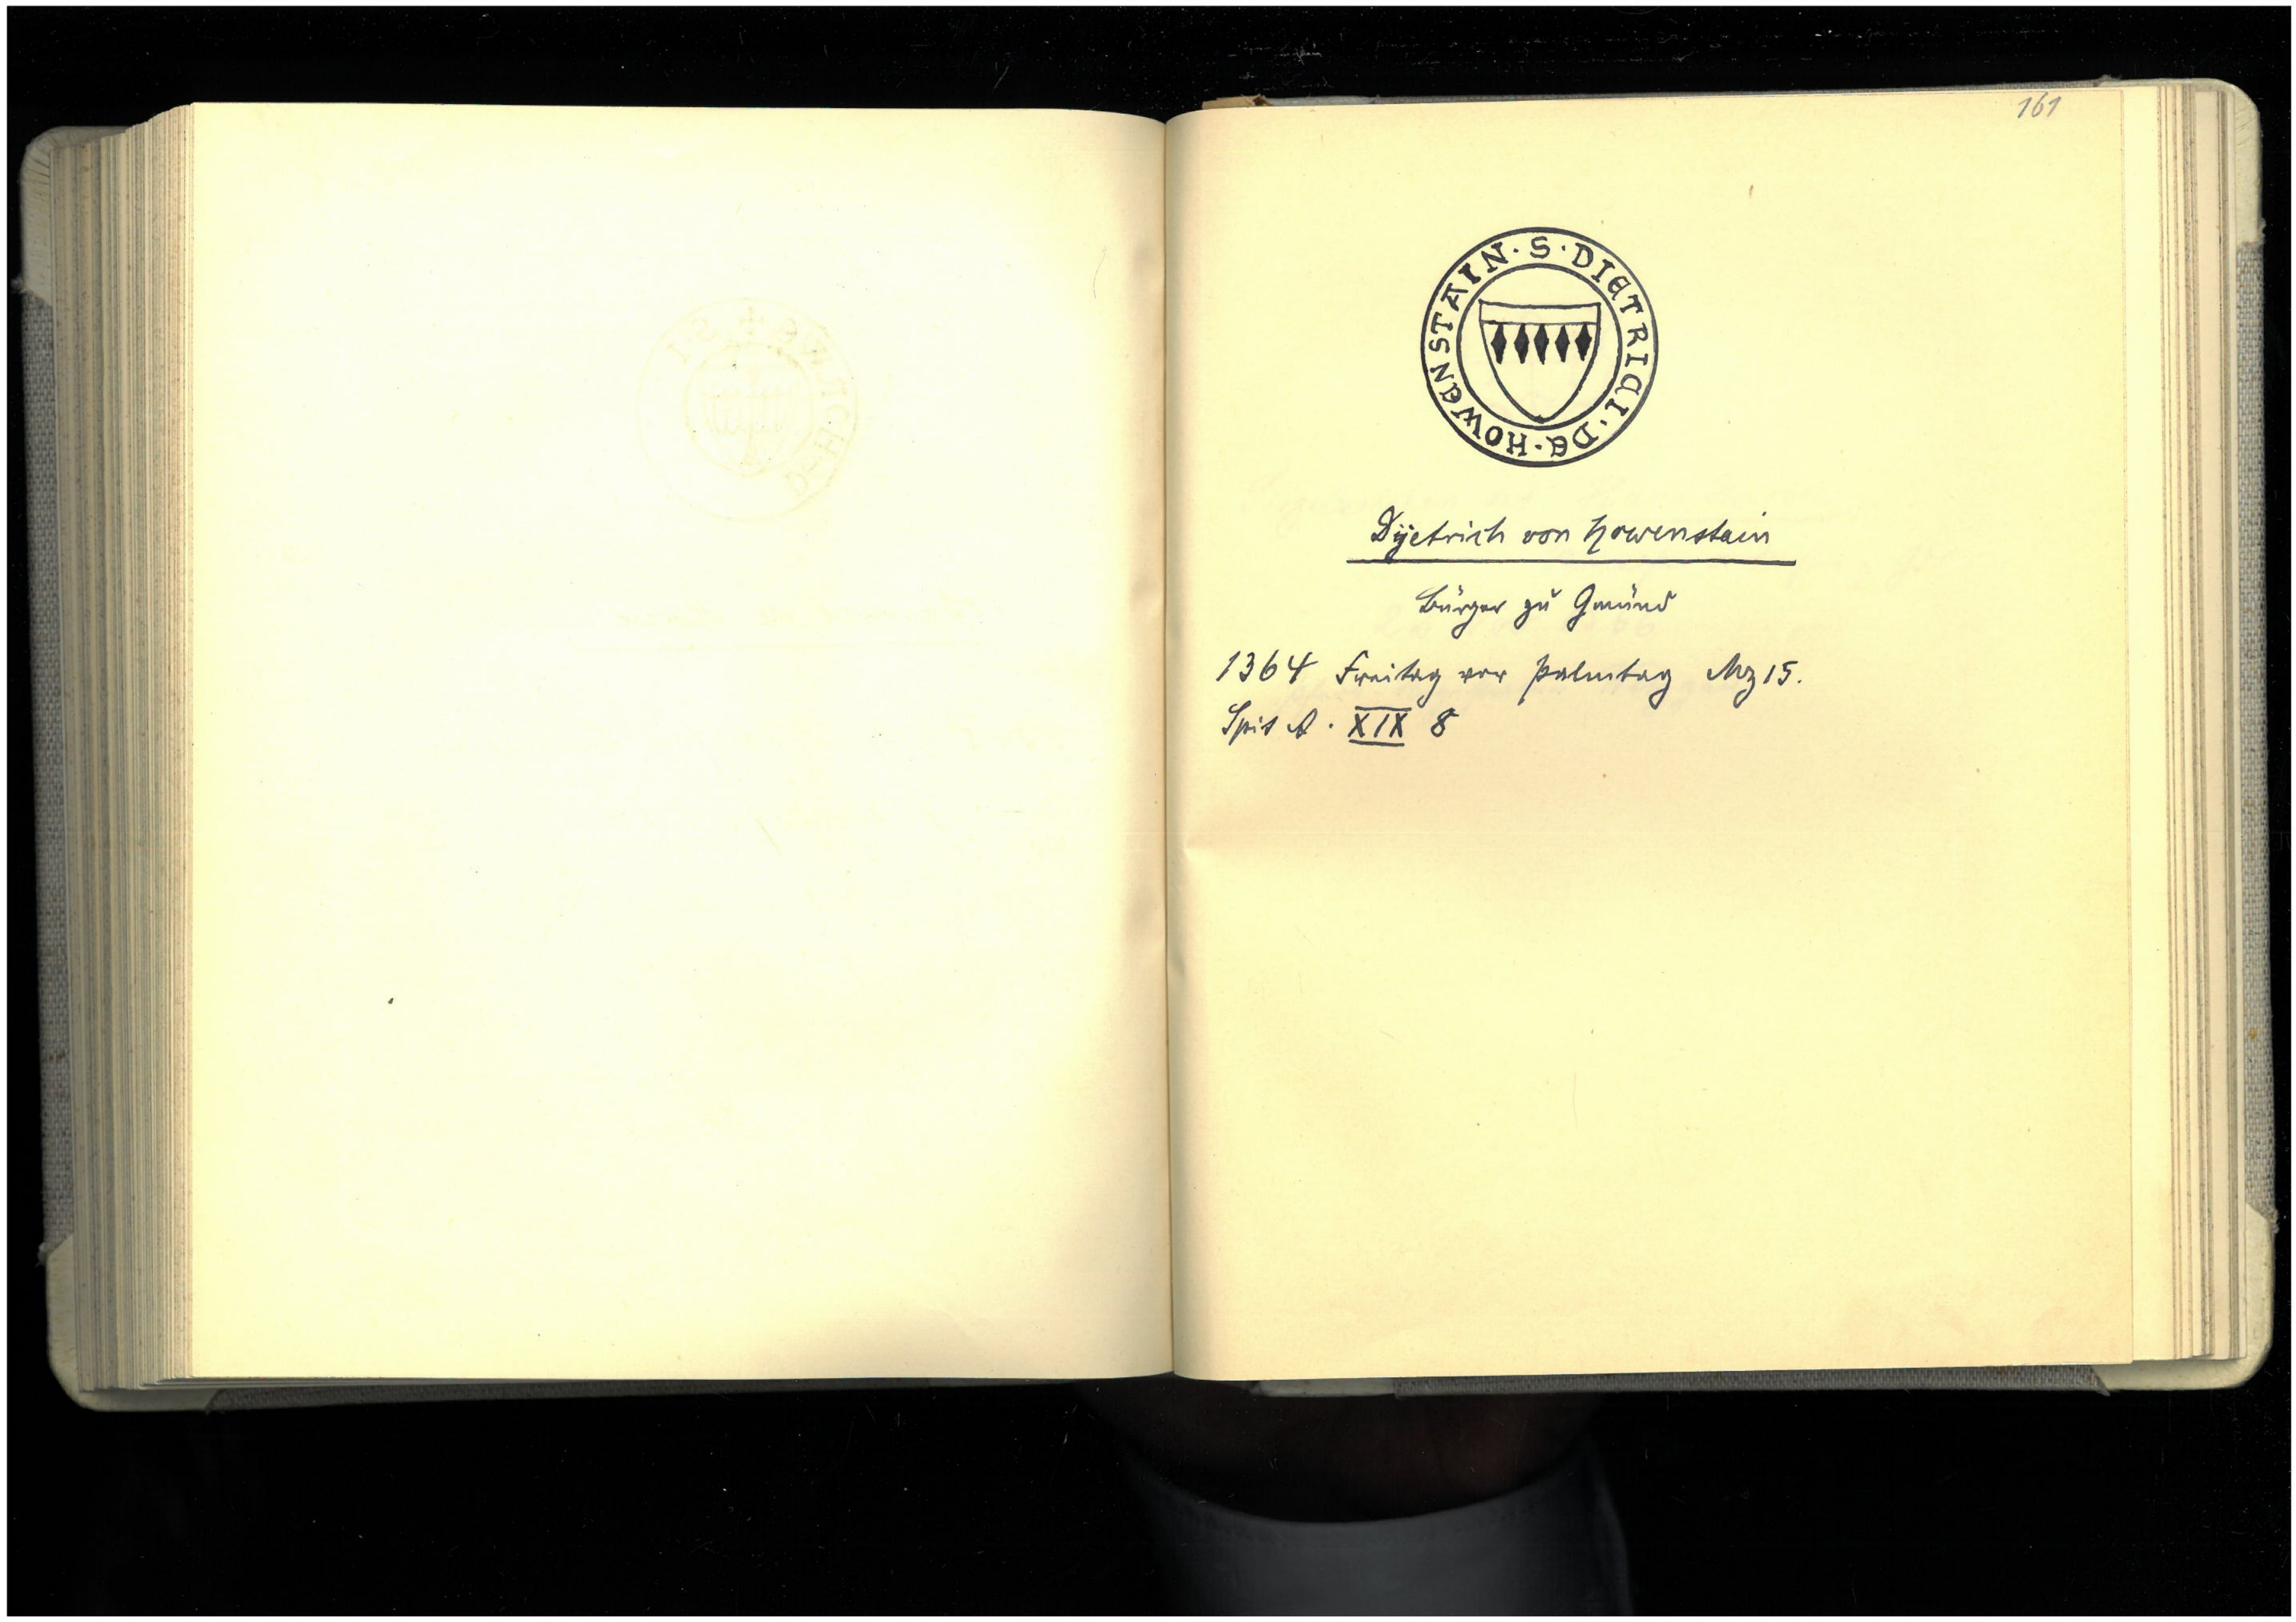 161
· S · DIETRICI · DE · HOWENSTAIN
Dÿetrich von Howenstain
Bürger zu Gmünd
1364 Freitag vor Palmtag Mz 15.
Spit A · XIX 8